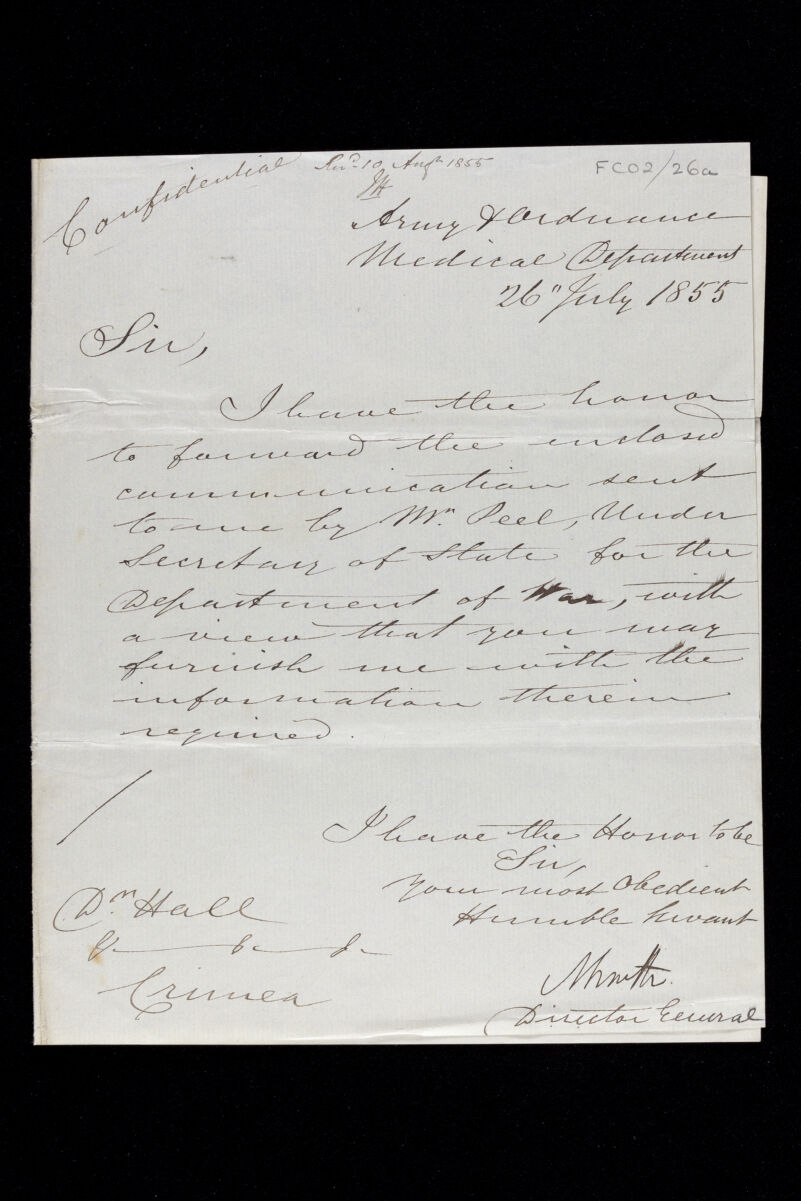 Confidential
Recd 10 Augt 1855
JH
FC02/26a
Army & Ordnance
Medical Department
26" July 1855
Sir,
I have the honor
to forward the enclosed
communication sent
to me by Mr. Peel, Under
Secretary of State for the
Department of War, with
a view that you may
furnish me with the
information therein
required.
I have the Honor to be
Sir,
Your most Obedient
Humble Servant
Director General
Dr Hall
&c &c &c
Crimea